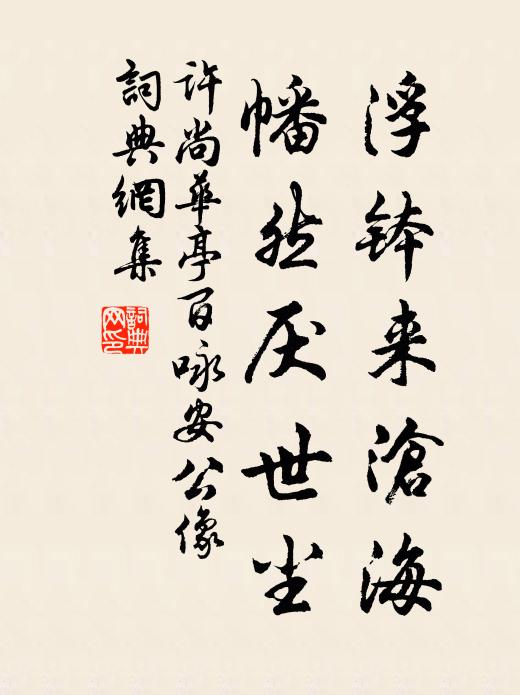 浮钵来滄海
幡然厌世尘
许尚華亭百咏安公像
詞典網集
詞典网印